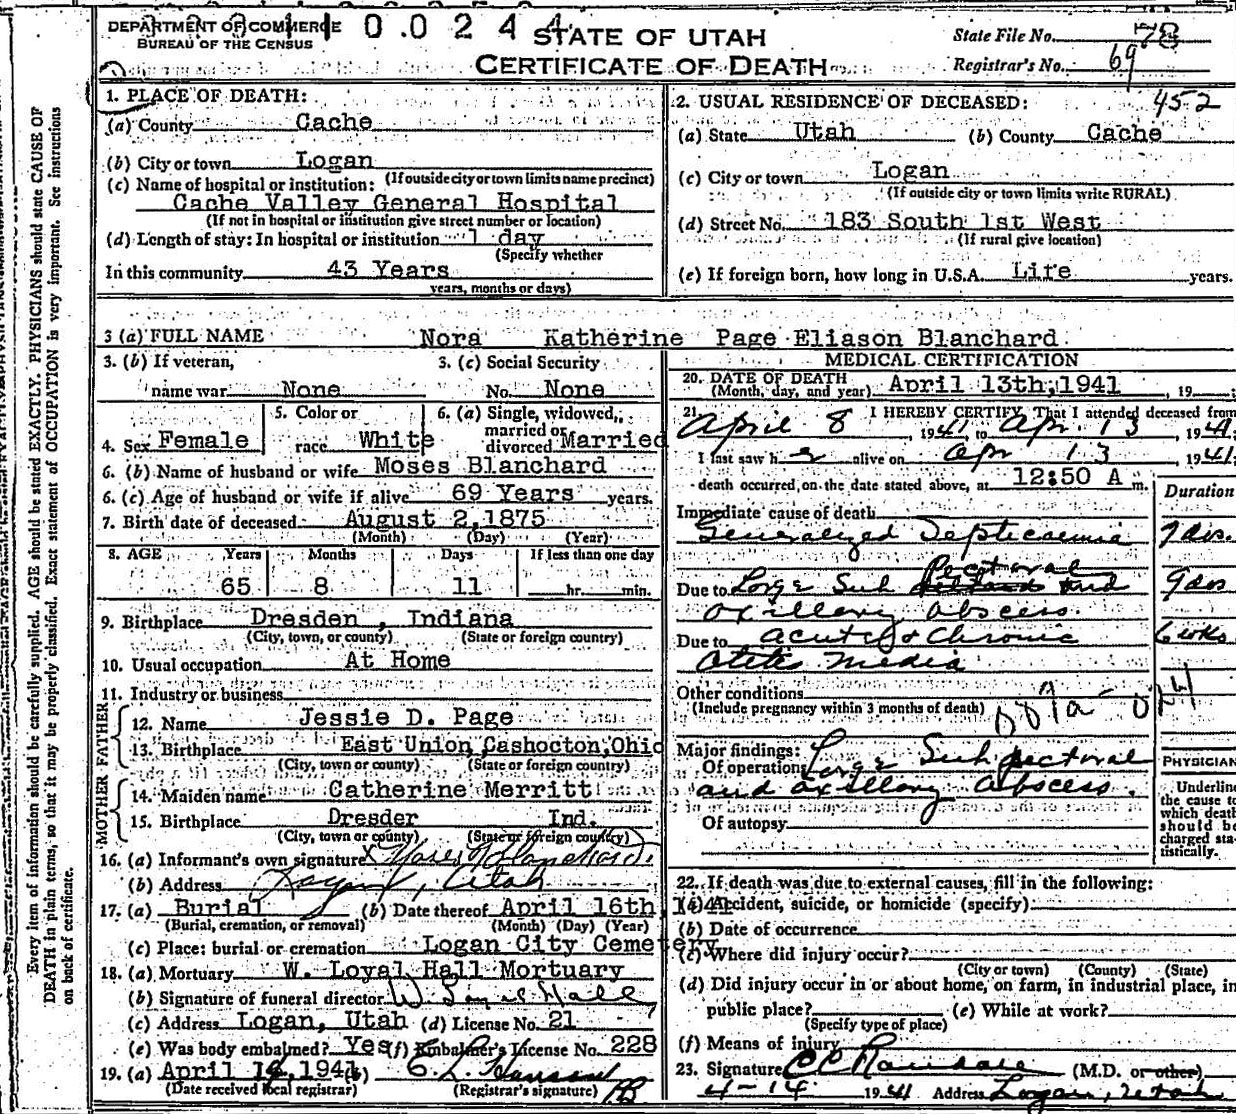 DEPARTMENT OF COMMERCE
BUREAU OF THE CENSUS
0.0244
STATE OF UTAH
CERTIFICATE OF DEATH
State File No. 78
Registrar's No. 69
452
1. PLACE OF DEATH:
(a) County Cache
(b) City or town Logan
(If outside city or town limits name precinct)
(c) Name of hospital or institution:
Cache Valley General Hospital
(If not in hospital or institution give street number or location)
(d) Length of stay: In hospital or institution 1 day
(Specify whether
In this community 43 Years
years, months or days)
2. USUAL RESIDENCE OF DECEASED:
(a) State Utah (b) County Cache
(c) City or town Logan
(If outside city or town limits write RURAL)
(d) Street No. 183 South 1st West
(If rural give location)
(e) If foreign born, how long in U.S.A. Life years.
3 (a) FULL NAME Nora Katherine Page Eliason Blanchard
3. (b) If veteran,
name war None
3. (c) Social Security
No. None
4. Sex Female
5. Color or
race White
6. (a) Single, widowed,
married or
divorced Married
6. (b) Name of husband or wife Moses Blanchard
6. (c) Age of husband or wife if alive 69 Years years.
7. Birth date of deceased August 2, 1875
(Month) (Day) (Year)
8. AGE Years Months Days If less than one day
65 8 11 hr. min.
9. Birthplace Dresden, Indiana
(City, town, or county) (State or foreign country)
10. Usual occupation At Home
11. Industry or business
FATHER
12. Name Jessie D. Page
13. Birthplace East Union Cashocton, Ohio
(City, town or county) (State or foreign country)
MOTHER
14. Maiden name Catherine Merritt
15. Birthplace Dresder Ind.
(City, town or county) (State or foreign country)
16. (a) Informant's own signature X Moses Blanchard
(b) Address Logan, Utah
17. (a) Burial (b) Date thereof April 16th, 1941
(Burial, cremation, or removal) (Month) (Day) (Year)
(c) Place: burial or cremation Logan City Cemetery
18. (a) Mortuary W. Loyal Hall Mortuary
(b) Signature of funeral director W Loyal Hall
(c) Address Logan, Utah (d) License No. 21
(e) Was body embalmed? Yes (f) Embalmer's License No. 228
19. (a) April 1941 (b)
(Date received local registrar) (Registrar's signature)
MEDICAL CERTIFICATION
20. DATE OF DEATH
(Month, day, and year) April 13th, 1941, 19
21. I HEREBY CERTIFY, That I attended deceased from
April 8, 1941, to Apr. 13, 1941
I last saw her alive on Apr 13 1941
death occurred on the date stated above, at 12:50 A m.
Duration
Immediate cause of death
Generalized Septicaemia 7 das.
Pectoral
Due to Large Sub and 9 das
axillary abscess.
Due to acute & chronic 6 wks.
Otitis media
Other conditions
(Include pregnancy within 3 months of death)
Major findings:
Of operation Large Sub pectoral
and axillary abscess.
Of autopsy
PHYSICIAN
Underline
the cause to
which death
should be
charged sta-
tistically.
22. If death was due to external causes, fill in the following:
(a) Accident, suicide, or homicide (specify):
(b) Date of occurrence
(c) Where did injury occur?
(City or town) (County) (State)
(d) Did injury occur in or about home, on farm, in industrial place, in
public place? (e) While at work?
(Specify type of place)
(f) Means of injury
23. Signature (M.D. or other)
4-14 1941 Address Logan, Utah
Every item of information should be carefully supplied. AGE should be stated EXACTLY. PHYSICIANS should state CAUSE OF
DEATH in plain terms, so that it may be properly classified. Exact statement of OCCUPATION is very important. See instructions
on back of certificate.